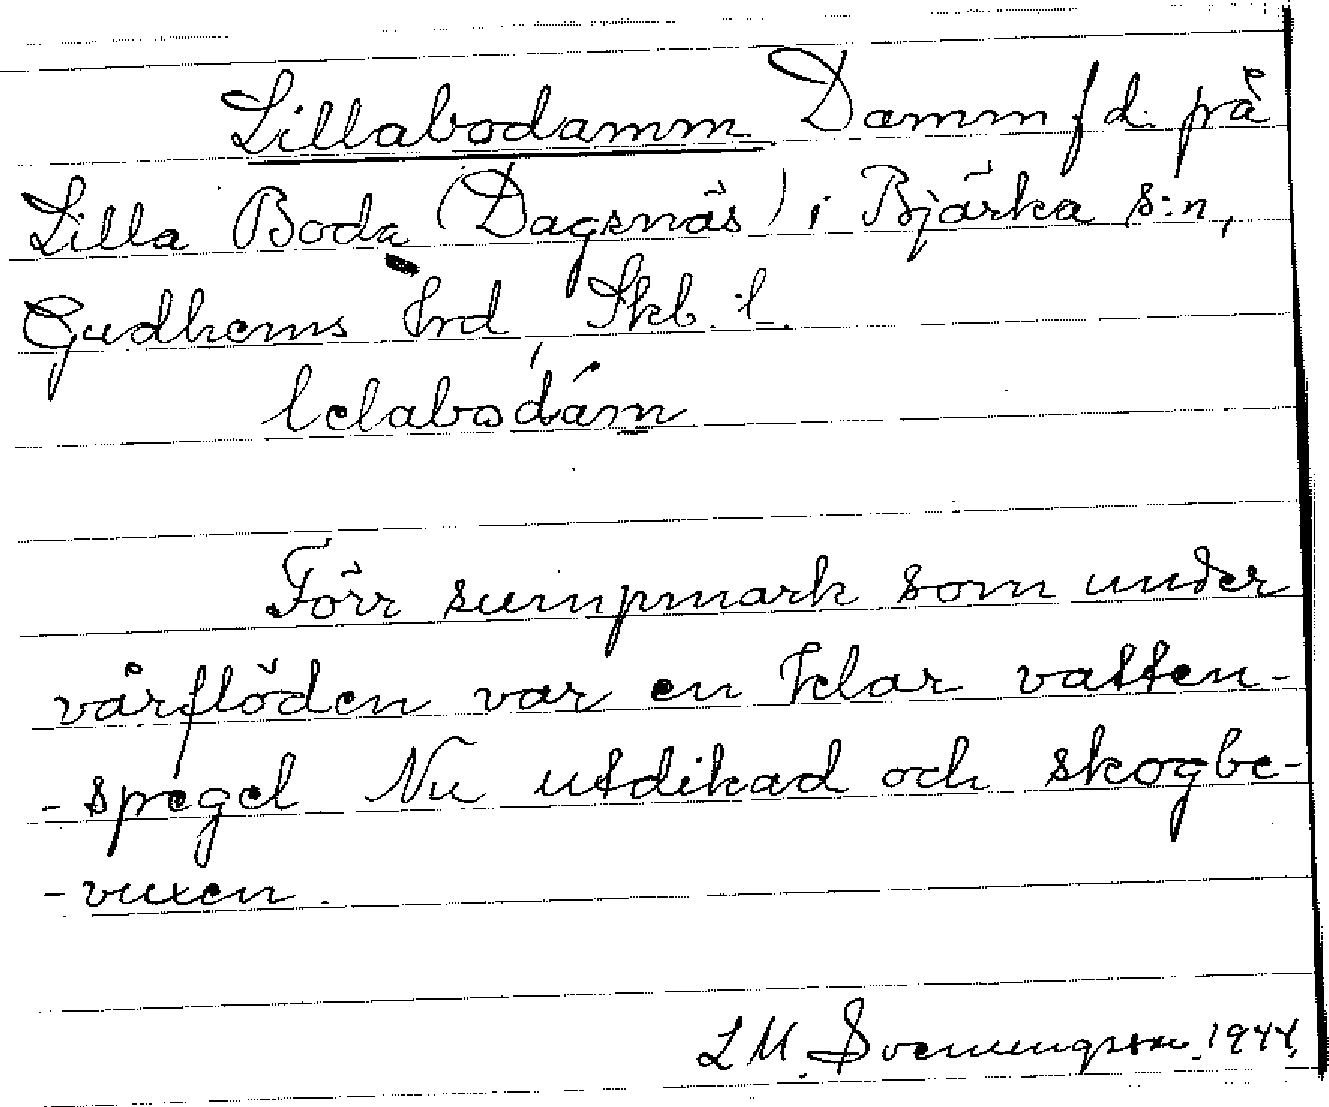 Lillabodamm Damm f d. på
Lilla Boda (Dagsnäs) i Bjärka s:n,
Gudhems hrd, Skb. l.
lelabodám
Förr sumpmark som under
vårflöden var en klar vatten-
-spegel Nu utdikad och skogbe-
-vuxen.
L M. Svenungsson 1944.